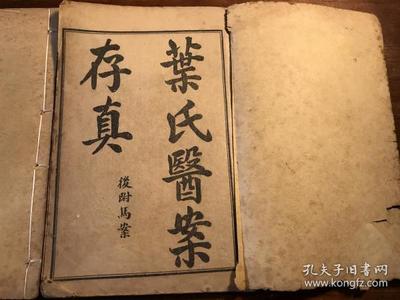 葉氏醫案
存真
後附馬案
孔夫子旧书网
www.kongfz.com